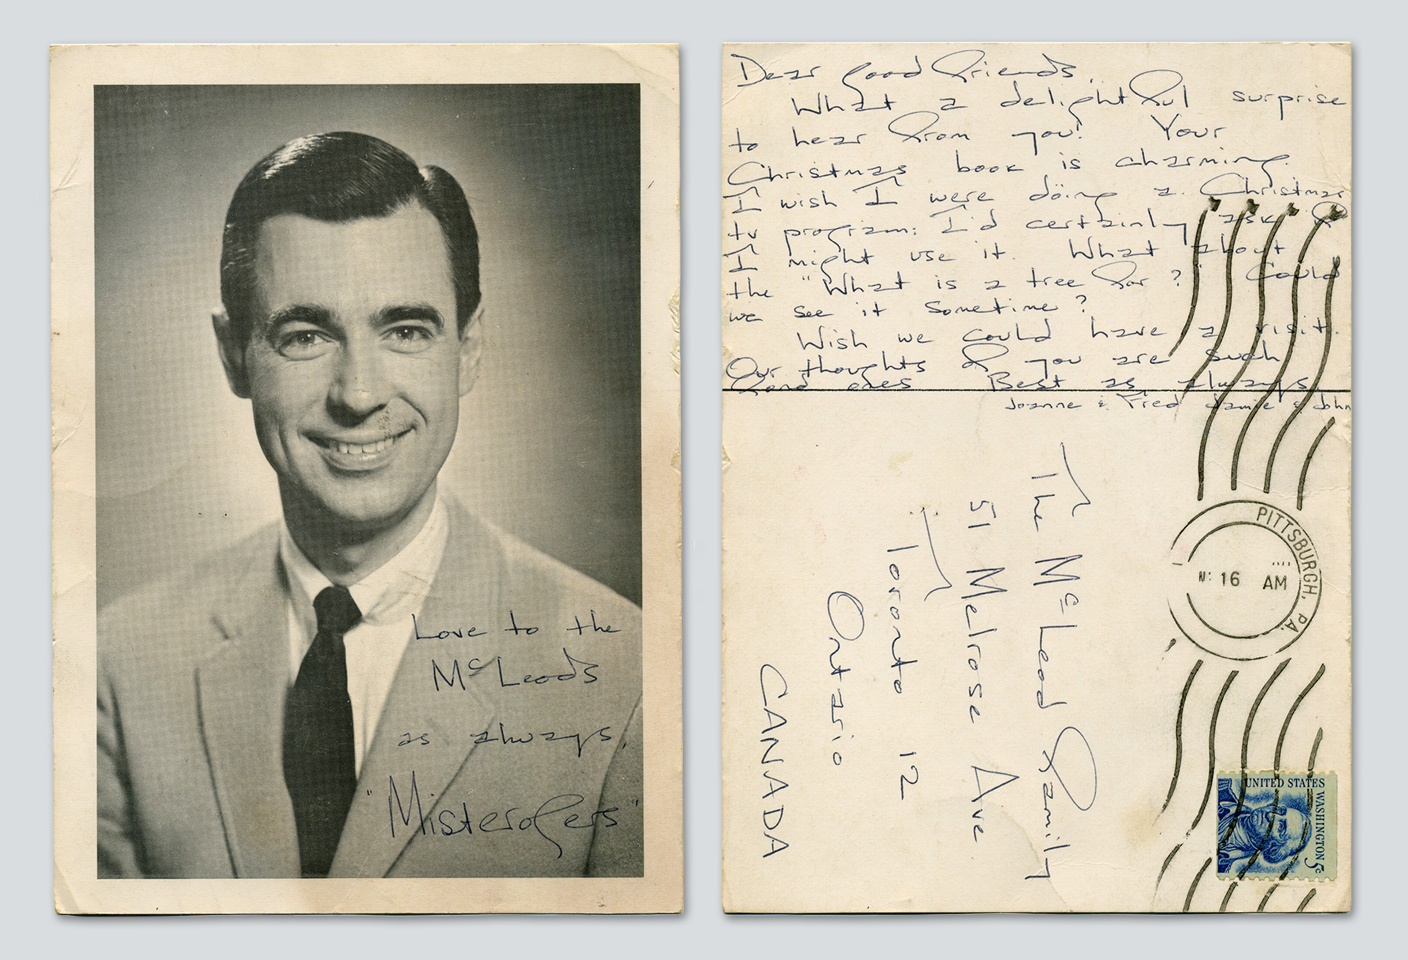 Love to the
McLeods
as always,
"Misterogers"
Dear good friends,
What a delightful surprise
to hear from you! Your
Christmas book is charming.
I wish I were doing a Christmas
tv program: I'd certainly ask if
I might use it. What about
the "What is a tree for?" Could
we see it sometime?
Wish we could have a visit.
Our thoughts of you are such
good ones Best as always
Joanne & Fred Jamie & John
The McLeod Family
51 Melrose Ave.
Toronto 12
Ontario
CANADA
PITTSBURGH, PA.
16 AM
UNITED STATES
WASHINGTON 5c